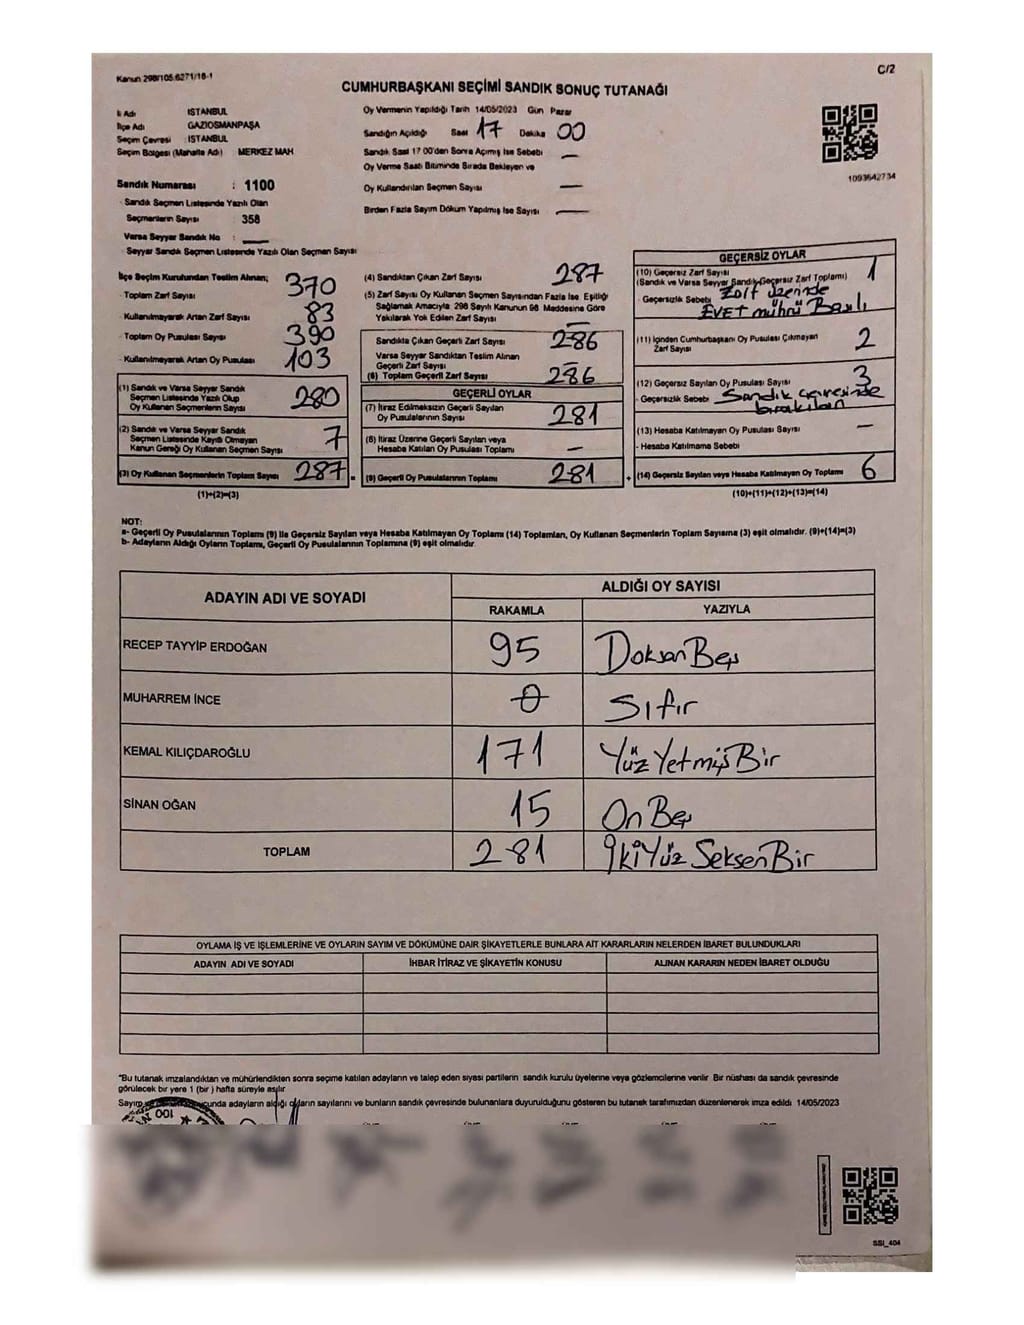 Kanun 298/105.6271/16-1
C/2
CUMHURBAŞKANI SEÇİMİ SANDIK SONUÇ TUTANAĞI
İli Adı İSTANBUL
İlçe Adı GAZİOSMANPAŞA
Seçim Çevresi : İSTANBUL
Seçim Bölgesi (Mahalle Adı) : MERKEZ MAH
Sandık Numarası : 1100
- Sandık Seçmen Listesinde Yazılı Olan
Seçmenlerin Sayısı : 358
Varsa Seyyar Sandık No : —
- Seyyar Sandık Seçmen Listesinde Yazılı Olan Seçmen Sayısı
Oy Vermenin Yapıldığı Tarih 14/05/2023 Gün Pazar
Sandığın Açıldığı Saat 17 Dakika 00
Sandık Saat 17 00'den Sonra Açılmış İse Sebebi —
Oy Verme Saati Bitiminde Sırada Bekleyen ve
Oy Kullandırılan Seçmen Sayısı —
Birden Fazla Sayım Döküm Yapılmış İse Sayısı —
1093642734
İlçe Seçim Kurulundan Teslim Alınan;
- Toplam Zarf Sayısı 370
- Kullanılmayarak Artan Zarf Sayısı 83
- Toplam Oy Pusulası Sayısı 390
- Kullanılmayarak Artan Oy Pusulası 103
(1) Sandık ve Varsa Seyyar Sandık
Seçmen Listesinde Yazılı Olup
Oy Kullanan Seçmenlerin Sayısı 280
(2) Sandık ve Varsa Seyyar Sandık
Seçmen Listesinde Kayıtlı Olmayan
Kanun Gereği Oy Kullanan Seçmen Sayısı 7
(3) Oy Kullanan Seçmenlerin Toplam Sayısı 287 =
(1)+(2)=(3)
(4) Sandıktan Çıkan Zarf Sayısı 287
(5) Zarf Sayısı Oy Kullanan Seçmen Sayısından Fazla İse Eşitliği
Sağlamak Amacıyla 298 Sayılı Kanunun 98 Maddesine Göre
Yakılarak Yok Edilen Zarf Sayısı —
Sandıkta Çıkan Geçerli Zarf Sayısı 286
Varsa Seyyar Sandıktan Teslim Alınan
Geçerli Zarf Sayısı
(6) Toplam Geçerli Zarf Sayısı 286
GEÇERLİ OYLAR
(7) İtiraz Edilmeksizin Geçerli Sayılan
Oy Pusulalarının Sayısı 281
(8) İtiraz Üzerine Geçerli Sayılan veya
Hesaba Katılan Oy Pusulası Toplamı —
(9) Geçerli Oy Pusulalarının Toplamı 281 +
GEÇERSİZ OYLAR
(10) Geçersiz Zarf Sayısı 1
(Sandık ve Varsa Seyyar Sandık Geçersiz Zarf Toplamı)
- Geçersizlik Sebebi Zarf üzerinde
EVET mührü Basılı
(11) İçinden Cumhurbaşkanı Oy Pusulası Çıkmayan
Zarf Sayısı 2
(12) Geçersiz Sayılan Oy Pusulası Sayısı 3
- Geçersizlik Sebebi Sandık çevresinde
bırakılan
(13) Hesaba Katılmayan Oy Pusulası Sayısı —
- Hesaba Katılmama Sebebi
(14) Geçersiz Sayılan veya Hesaba Katılmayan Oy Toplamı 6
(10)+(11)+(12)+(13)=(14)
NOT:
a- Geçerli Oy Pusulalarının Toplamı (9) ile Geçersiz Sayılan veya Hesaba Katılmayan Oy Toplamı (14) Toplamları, Oy Kullanan Seçmenlerin Toplam Sayısına (3) eşit olmalıdır. (9)+(14)=(3)
b- Adayların Aldığı Oyların Toplamı, Geçerli Oy Pusulalarının Toplamına (9) eşit olmalıdır
ADAYIN ADI VE SOYADI
ALDIĞI OY SAYISI
RAKAMLA YAZIYLA
RECEP TAYYİP ERDOĞAN 95 Doksan Beş
MUHARREM İNCE 0 Sıfır
KEMAL KILIÇDAROĞLU 171 Yüz Yetmiş Bir
SİNAN OĞAN 15 On Beş
TOPLAM 281 İki Yüz Seksen Bir
OYLAMA İŞ VE İŞLEMLERİNE VE OYLARIN SAYIM VE DÖKÜMÜNE DAİR ŞİKAYETLERLE BUNLARA AİT KARARLARIN NELERDEN İBARET BULUNDUKLARI
ADAYIN ADI VE SOYADI İHBAR İTİRAZ VE ŞİKAYETİN KONUSU ALINAN KARARIN NEDEN İBARET OLDUĞU
"Bu tutanak imzalandıktan ve mühürlendikten sonra seçime katılan adayların ve talep eden siyasi partilerin sandık kurulu üyelerine veya gözlemcilerine verilir Bir nüshası da sandık çevresinde
görülecek bir yere 1 (bir) hafta süreyle asılır
adayların aldığı oyların sayılarını ve bunların sandık çevresinde bulunanlara duyurulduğunu gösteren bu tutanak tarafımızdan düzenlenerek imza edildi 14/05/2023
SSI_404